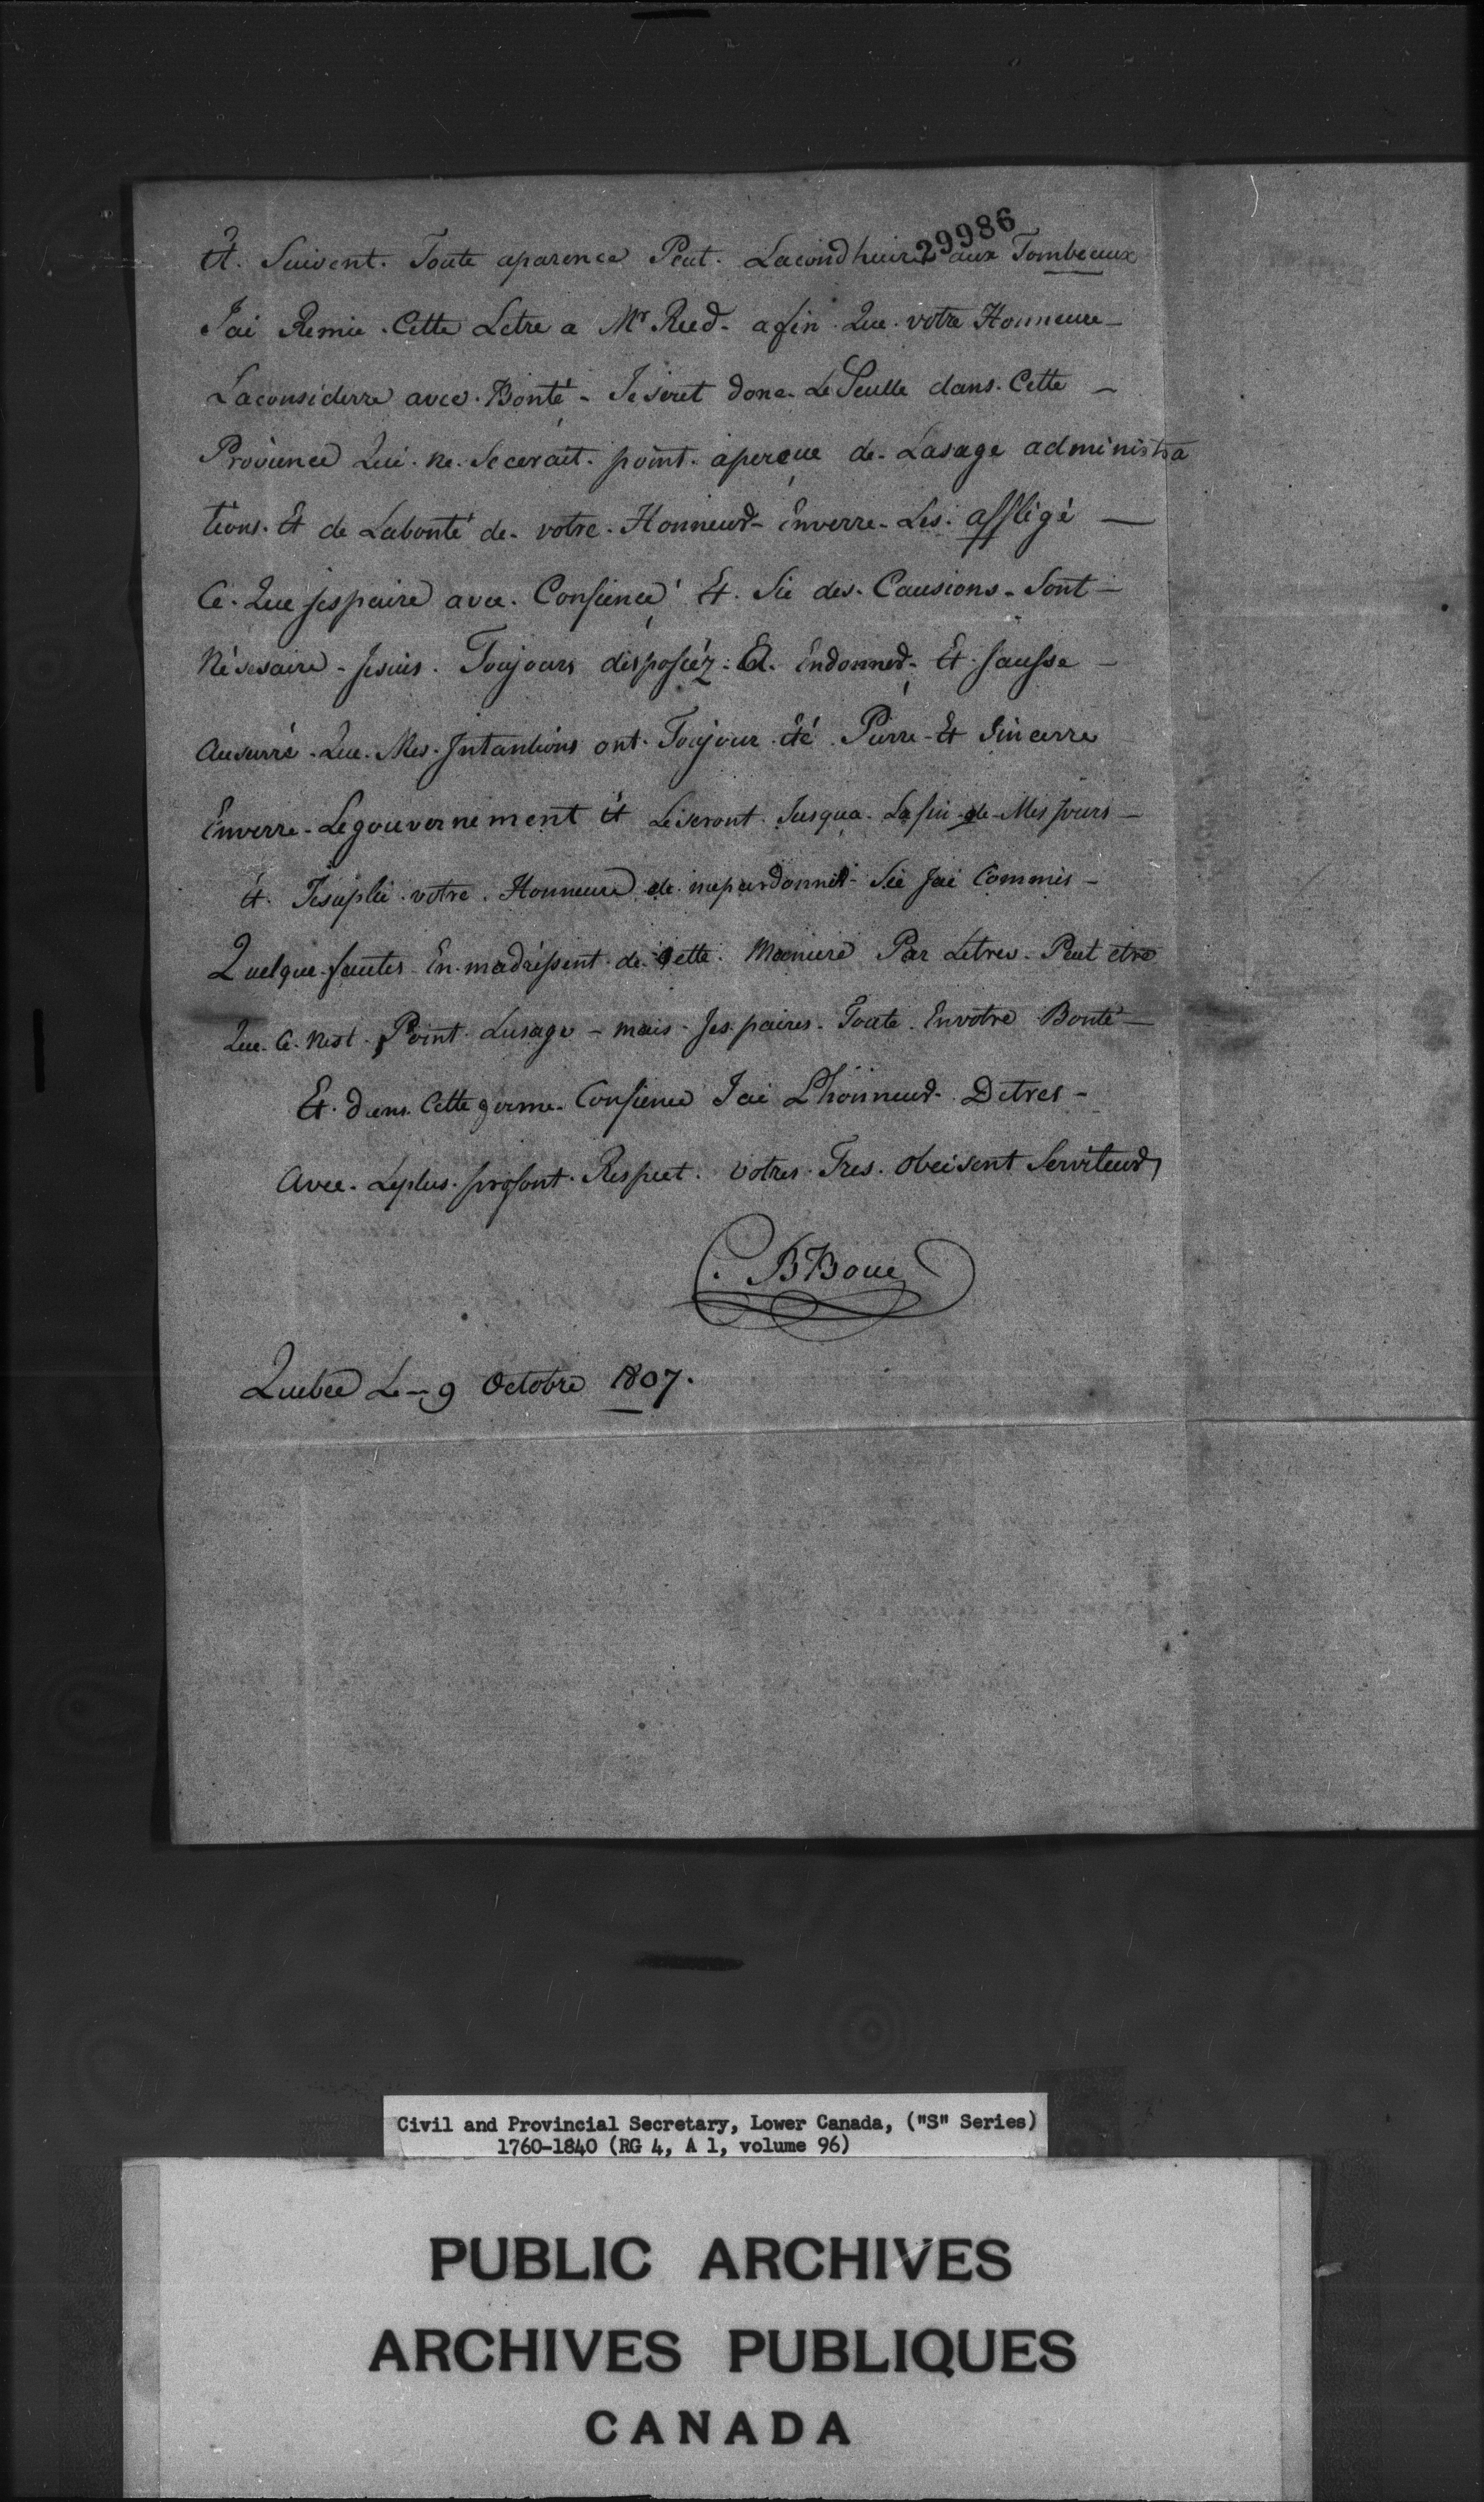 29986
Et. Suivent. Toute aparence Peut. Lacondhuire aux Tombeaux
J'ai Remie. Cette Letre a Mr Reed - afin. Que. votre Honneure -
Laconsiderre avec. Bonté - Je seret donc. Le Seulle dans. Cette -
Provience Qui. ne. Secerait. point. aperçue de. Lasage administra
tions. Et de Labonté de. votre. Honneur - Enverre - Les. affligé -
Ce. Que jespaire avec. Confience Et. Sie des. Causions - Sont -
Nésesaire - Jesuis. Toujours disposéz. A. Endonner - Et. Jausse -
Ausurré - Que. Mes. Intantions ont. Toujour. été. Purre - Et Sincerre
Enverre - Legouvernement Et Leseront. Jusqua. Lafin - de - Mes jours -
Et. Jesuplie. votre. Honneure de. mepardonner - Sie Jai Commis -
Quelque. fautes. En. madréssent. de. Cette. Maniere Par Letres. Peut etre
Que. Ce. Nest. Point. Lusage - mais - Jes paires. Toute. Envotre Bonté -
Et. dans. Cette ferme. Confience Jai L'honneur. Detres -
Avec. Leplus. profont. Respect. votres. Tres. obeisent Serviteur
BBoue
Quebec Le - 9 Octobre 1807.
Civil and Provincial Secretary, Lower Canada, ("S" Series)
1760-1840 (RG 4, A 1, volume 96)
PUBLIC ARCHIVES
ARCHIVES PUBLIQUES
CANADA